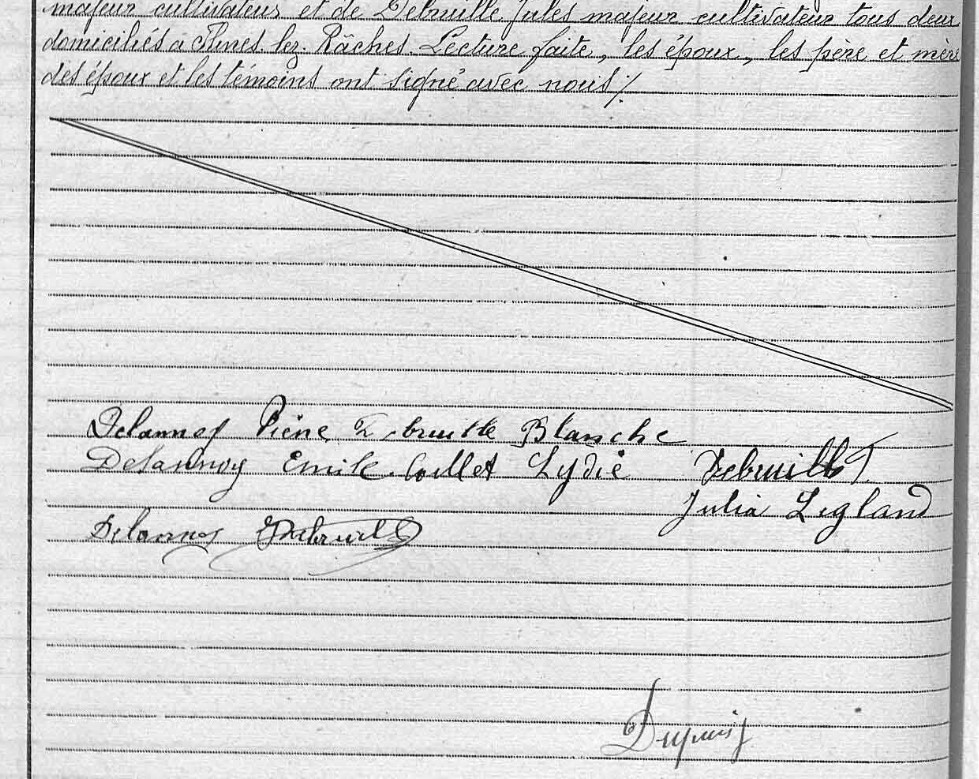 majeur cultivateur et de Debruille Jules majeur cultivateur tous deux
domiciliés à Flines lez Râches. Lecture faite, les époux, les père et mère
des époux et les témoins ont signé avec nous /.
Delannoy Pierre Debruille Blanche
Delannoy Emile Collet Lydie Debruille J
Julia Legland
Delannoy Debruille
Dupuis